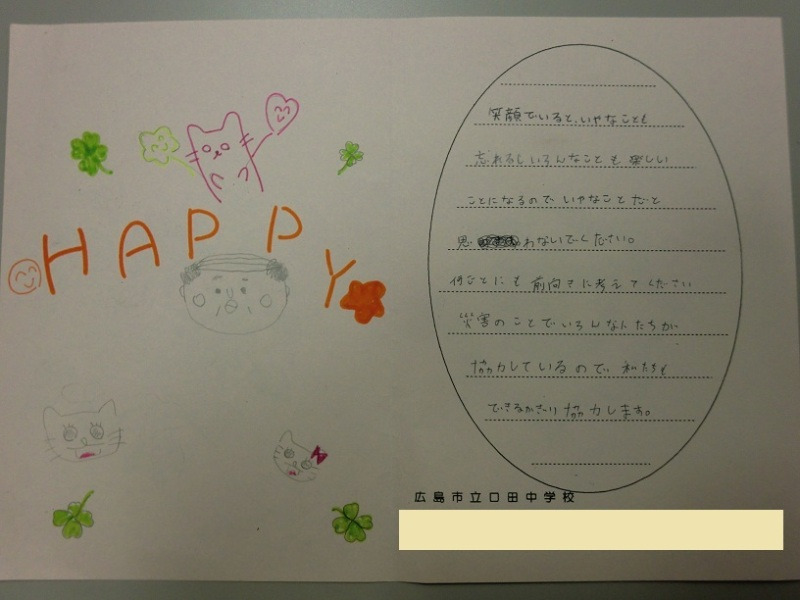 HAPPY
笑顔でいると、いやなことも
忘れるしいろんなことも楽しい
ことになるので いやなことだと
思わないでください。
何ごとにも前向きに考えてください
災害のことでいろんな人たちが
協力しているので、私たちも
できるかぎり協力します。
広島市立口田中学校